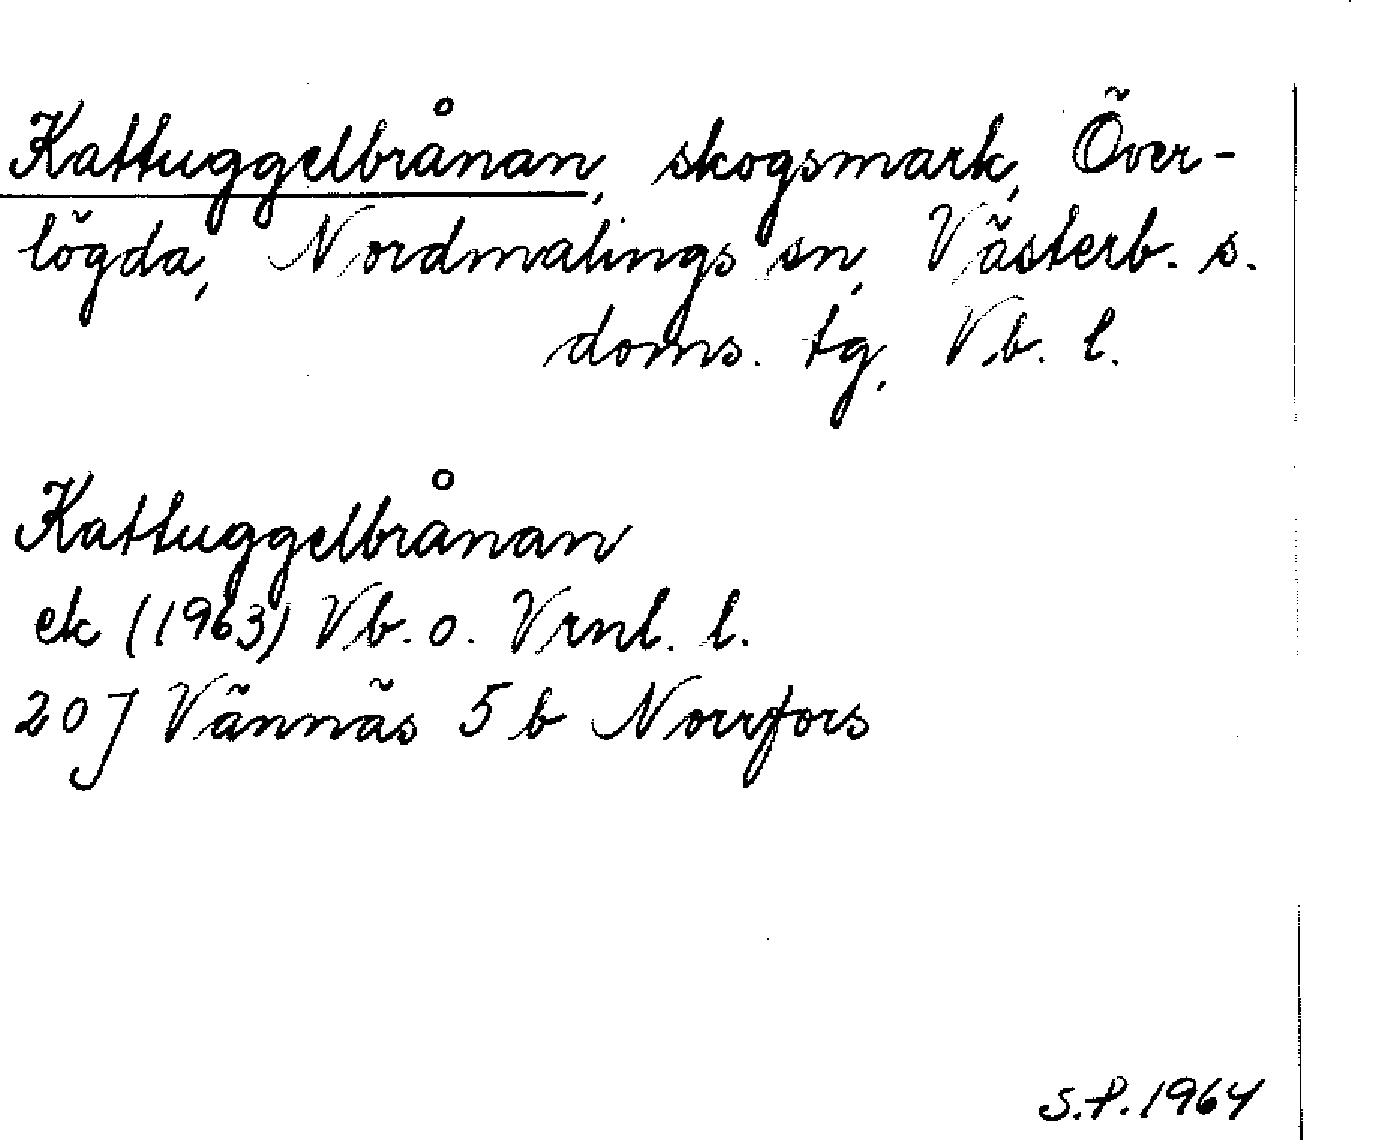 Kattuggelbrånan, skogsmark, Över-
lögda, Nordmalings sn, Västerb. s.
doms. tg, Vb. l.
Kattuggelbrånan
ek (1963) Vb. o. Vrnl. l.
20 J Vännäs 5 b Norrfors
S.P. 1964